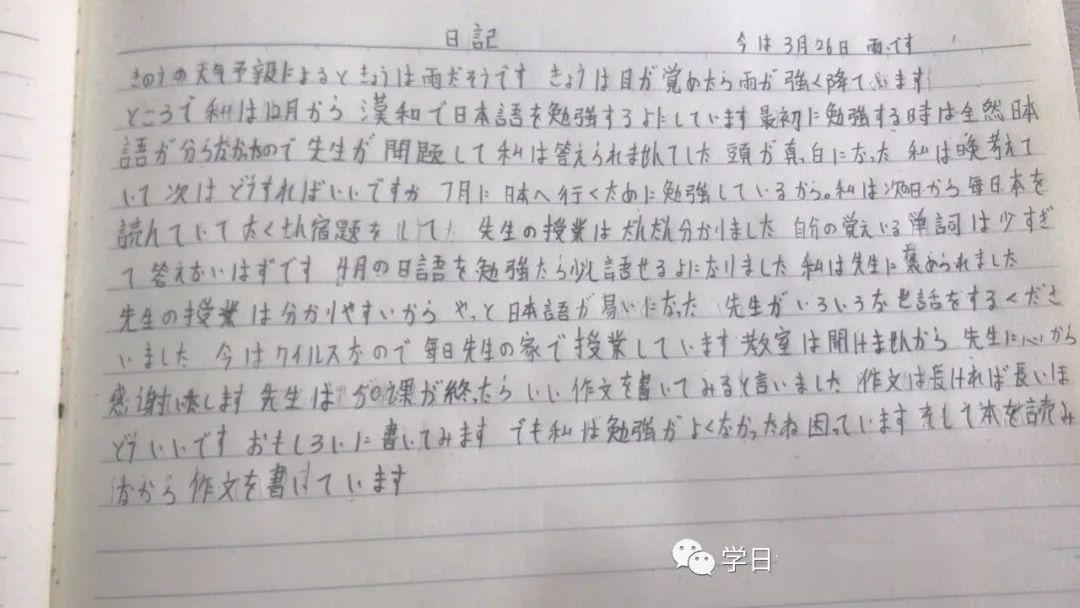 日記
今は3月26日 雨です
きのうの天気予報によるときょうは雨だそうです きょうは目が覚めたら雨が強く降ています
ところで私は12月から漢和で日本語を勉強するよにしています 最初に勉強する時は全然日本
語が分らなかたので先生が問題して私は答えられませんでした 頭が真っ白になった 私は晩考えて
いて次はどうすればいいですか 7月に日本へ行くために勉強しているから。私は次の日から毎日本を
読んでいてたくさん宿題をして 先生の授業はだんだん分かりました 自分の覚えいる単詞は少すぎ
て答えないはずです 4月の日語を勉強たら少し話せるよになりました 私は先生に褒められました
先生の授業は分かりやすいからやっと日本語が易いになった 先生がいろいろな世話をするくださ
いました 今はウイルスなので毎日先生の家で授業しています 教室は開けませんから 先生に心から
感謝します 先生は50課が終たらいい作文を書いてみると言いました 作文は長ければ長いほ
どういいです おもしろいに書いてみます でも私は勉強がよくなかったね 困っています そして本を読み
ながら作文を書いています
学日